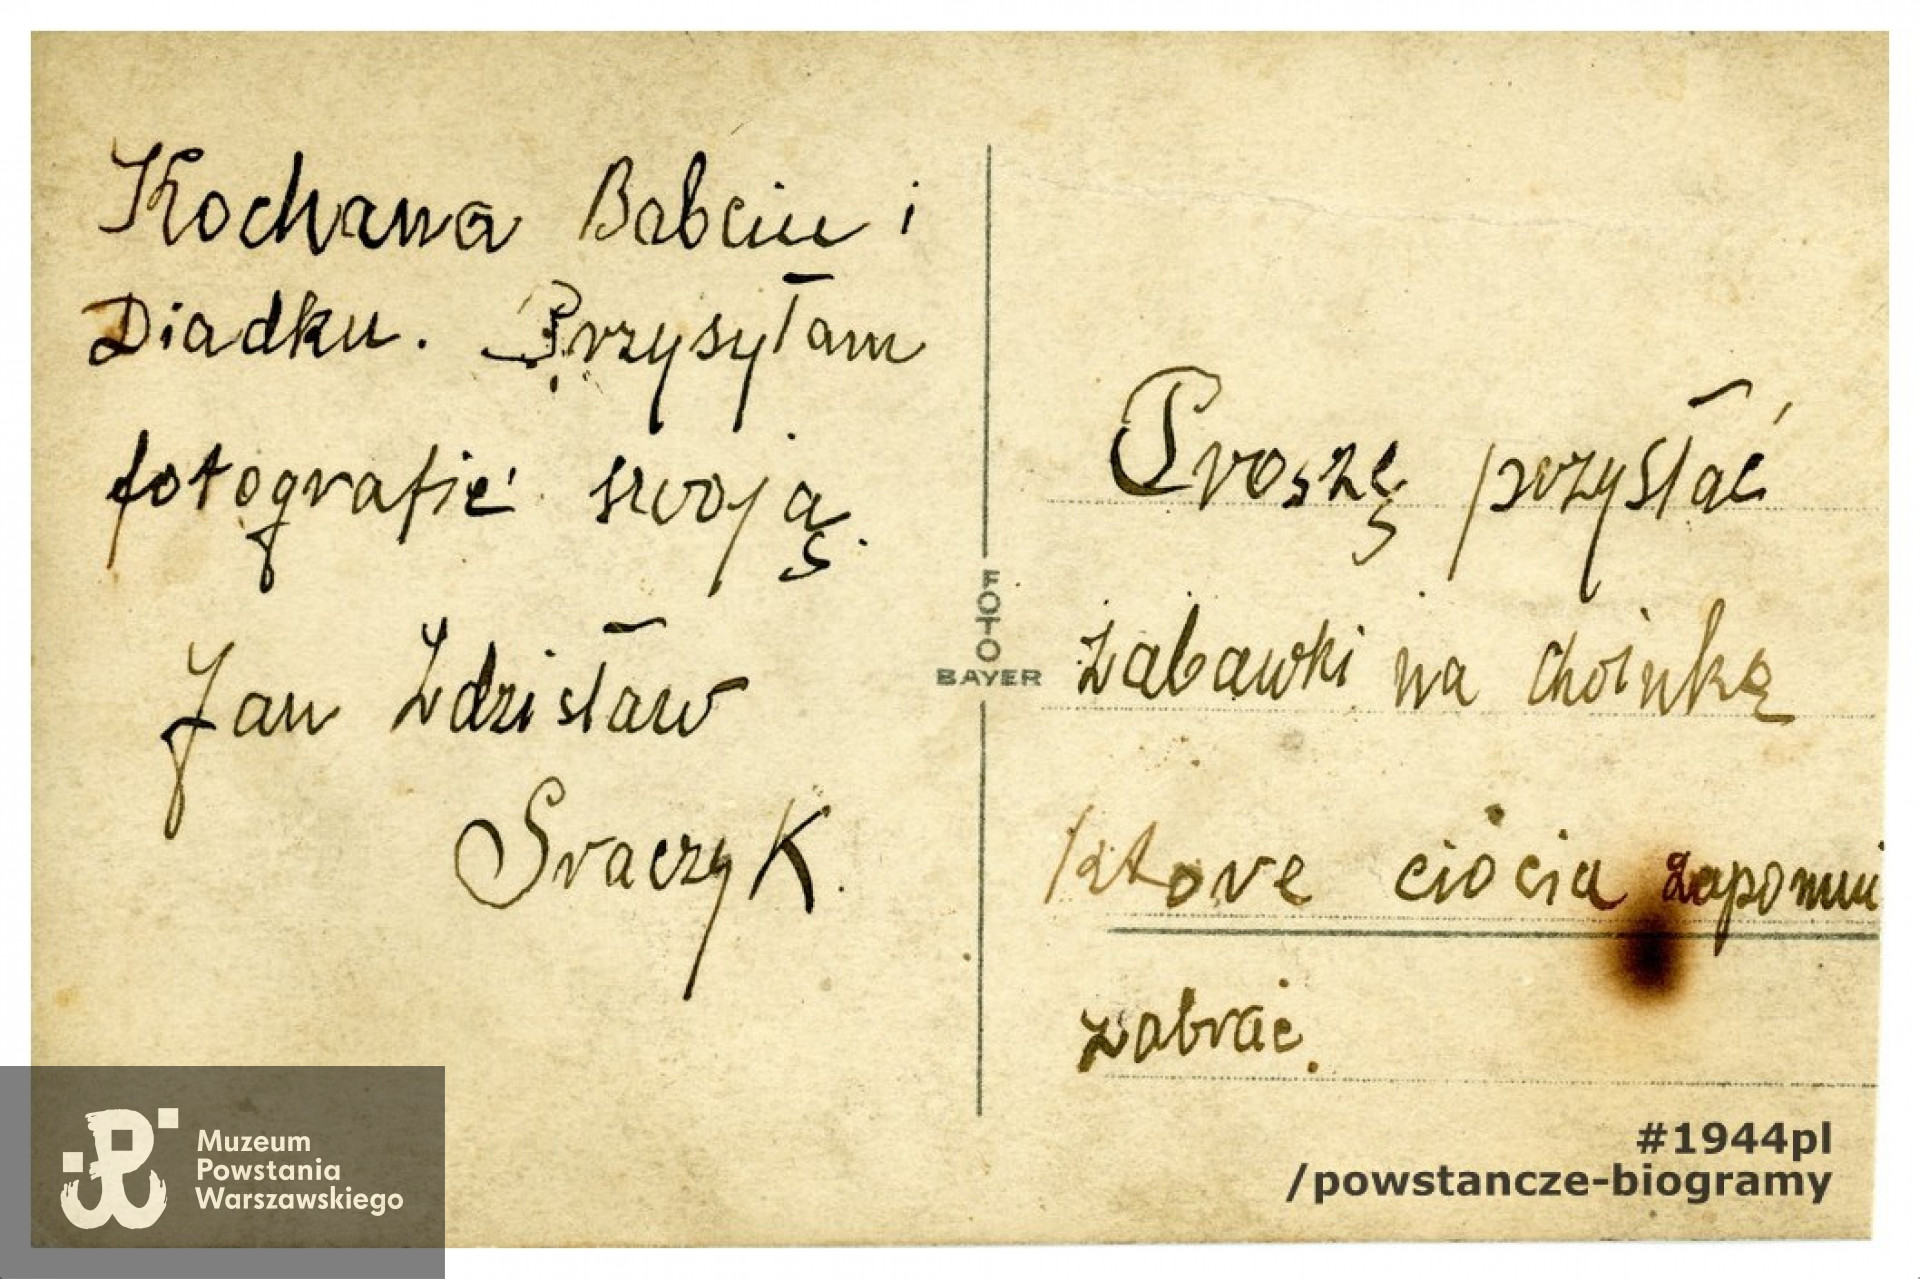 Kochana Babciu i
Diadku. Przysyłam
fotografie swoją.
Jan Zdzisław
Sraczyk.
FOTO
BAYER
Proszę przysłać
zabawki na choinkę
ktore ciocia zapomni
zabrać.
Muzeum
Powstania
Warszawskiego
#1944pl
/powstancze-biogramy